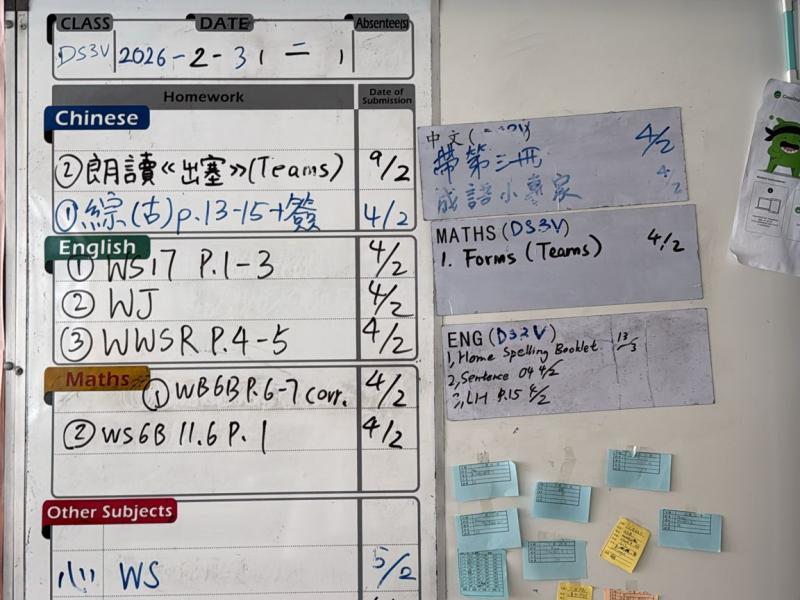 CLASS DATE Absentee(s)
DS3V 2026-2-3 ( 二 )
Homework Date of Submission
Chinese
② 朗讀《出塞》(Teams) 9/2
① 綜(古)p.13-15+簽 4/2
English
① WS17 P.1-3 4/2
② WJ 4/2
③ WWSR P.4-5 4/2
Maths
① WB6B P.6-7 corr. 4/2
② WS6B 11.6 P.1 4/2
Other Subjects
WS 5/2
中文(
帶第三冊 4/2
成語小專家 4/2
MATHS (DS3V)
1. Forms (Teams) 4/2
ENG (DS3V)
1, Home Spelling Booklet 13/3
2, Sentence 04 4/2
3, LH P.15 4/2